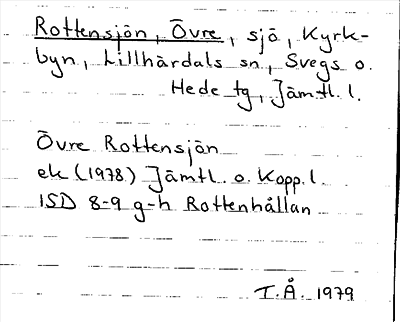 Rottensjön, Övre, sjö, Kyrk-
byn, Lillhärdals sn, Svegs o.
Hede tg, Jämtl. l.
Övre Rottensjön
ek (1978) Jämtl. o. Kopp. l.
ISD 8-9 g-h Rottenhållan
T.Å. 1979